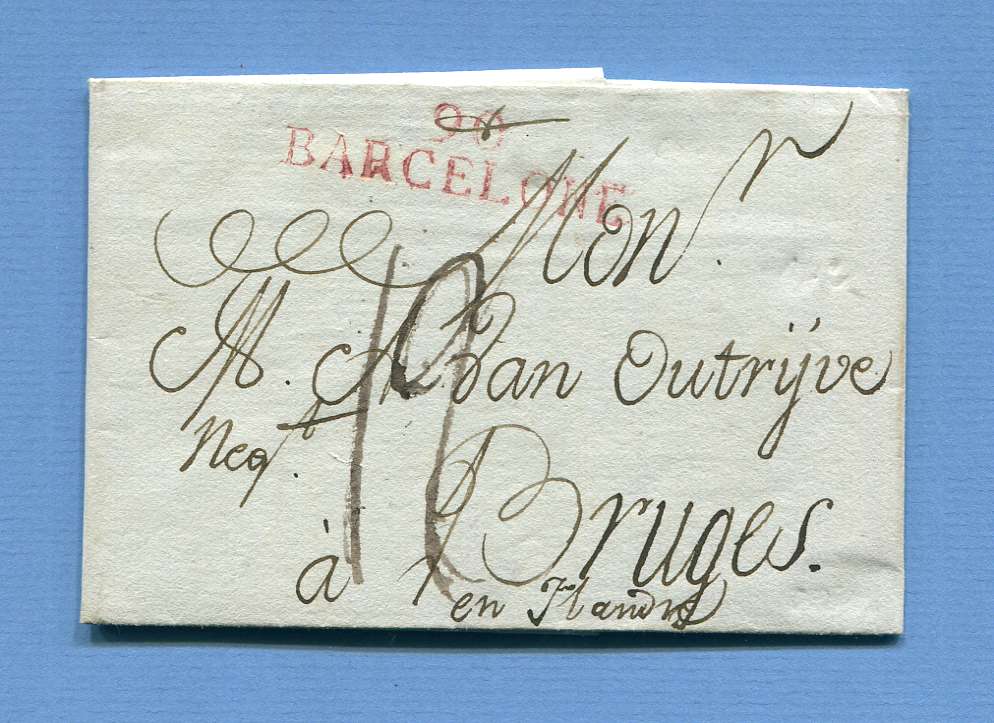 90
BARCELONE
Mon r.
M. A. Van Outrijve
Neg.t
à Bruges.
en Flandre